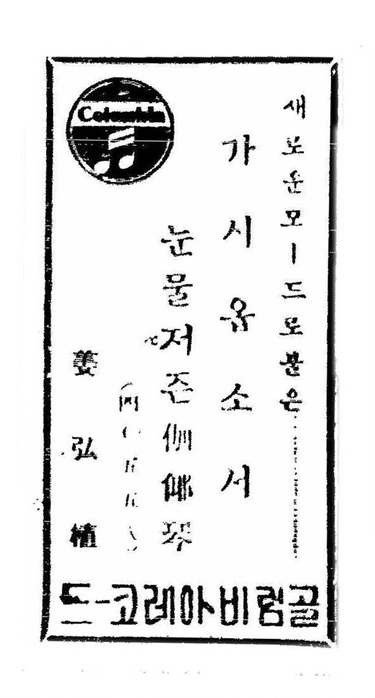 새로운모ー드로불은………
가시옵소서
눈물저즌伽倻琴
姜弘植
골럼비아레코-드
Columbia